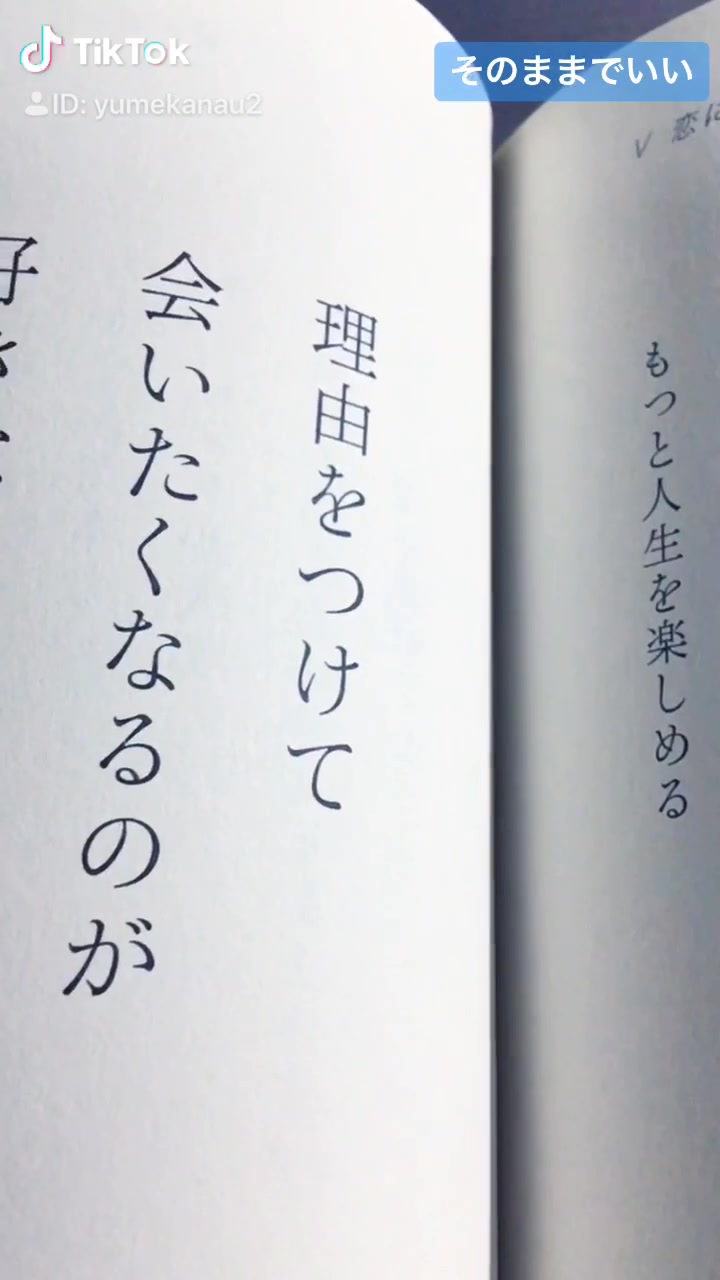 TikTok
ID: yumekanau2
そのままでいい
もっと人生を楽しめる
理由をつけて
会いたくなるのが